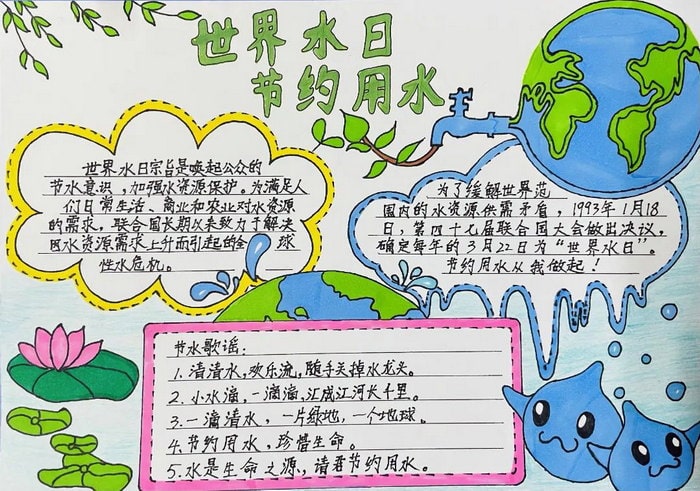 世界水日
节约用水
世界水日宗旨是唤起公众的
节水意识,加强水资源保护。为满足人
们日常生活、商业和农业对水资源
的需求,联合国长期以来致力于解决
因水资源需求上升而引起的全球
性水危机。
为了缓解世界范
围内的水资源供需矛盾,1993年1月18
日,第四十七届联合国大会做出决议,
确定每年的3月22日为“世界水日”。
节约用水从我做起!
节水歌谣:
1.清清水,欢乐流,随手关掉水龙头。
2.小水滴,一滴滴,汇成江河长千里。
3.一滴清水,一片绿地,一个地球。
4.节约用水,珍惜生命。
5.水是生命之源,请君节约用水。